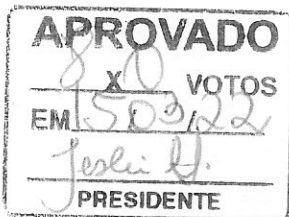 APROVADO
8 X 0 VOTOS
EM 15/03/22
PRESIDENTE